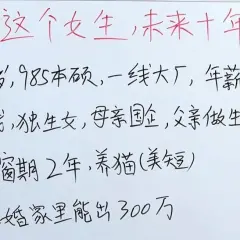 这个女生,未来十年
,985本硕,一线大厂,年薪
,独生女,母亲国企,父亲做生
窗期2年,养猫(美短)
婚家里能出300万